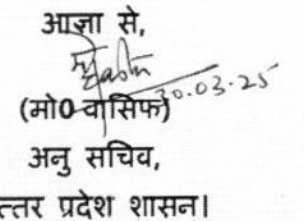 आज्ञा से,
30.03.25
(मो0 वासिफ)
अनु सचिव,
त्तर प्रदेश शासन।